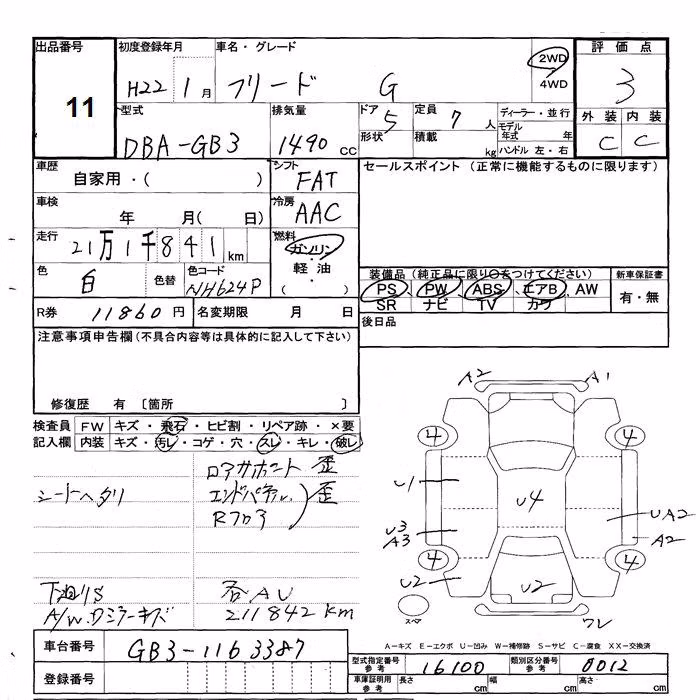 出品番号 初度登録年月 車名・グレード 評価点
11 H22 1月 フリード G 2WD 4WD 3
型式 排気量 ドア 定員 ディーラー・並行 外装 内装
DBA-GB3 1490 cc 5 7人 モデル年式 年 C C
形状 積載 kg ハンドル 左・右
車歴 シフト セールスポイント (正常に機能するものに限ります)
自家用・( ) FAT
車検 年 月( 日) 冷房 AAC
走行 21万1千841km 燃料 ガソリン・軽油・( )
色 白 色替 色コード NH624P
装備品 (純正品に限り○をつけてください) 新車保証書
PS PW ABS エアB AW 有・無
SR ナビ TV カワ
R券 11860円 名変期限 月 日 後日品
注意事項申告欄(不具合内容等は具体的に記入して下さい)
修復歴 有 〔箇所 〕
検査員 FW キズ・飛石・ヒビ割・リペア跡・×要
記入欄 内装 キズ・汚レ・コゲ・穴・スレ・キレ・破レ
シートヘタリ
ロアサポート 歪
エンドパネル 歪
Rフロア
下廻りS 各AU
A/W.Dミラーキズ 211842km
A2 A1
4 4
U1 U4
U3 UA2
A3 A2
4 4
U2 U2
スペア ワレ
A-キズ E-エクボ U-凹み W-補修跡 S-サビ C-腐食 XX-交換済
車台番号 GB3-1163387
登録番号
型式指定番号 参考 16100 類別区分番号 参考 0012
車庫証明用 参考 長さ cm 幅 cm 高さ cm